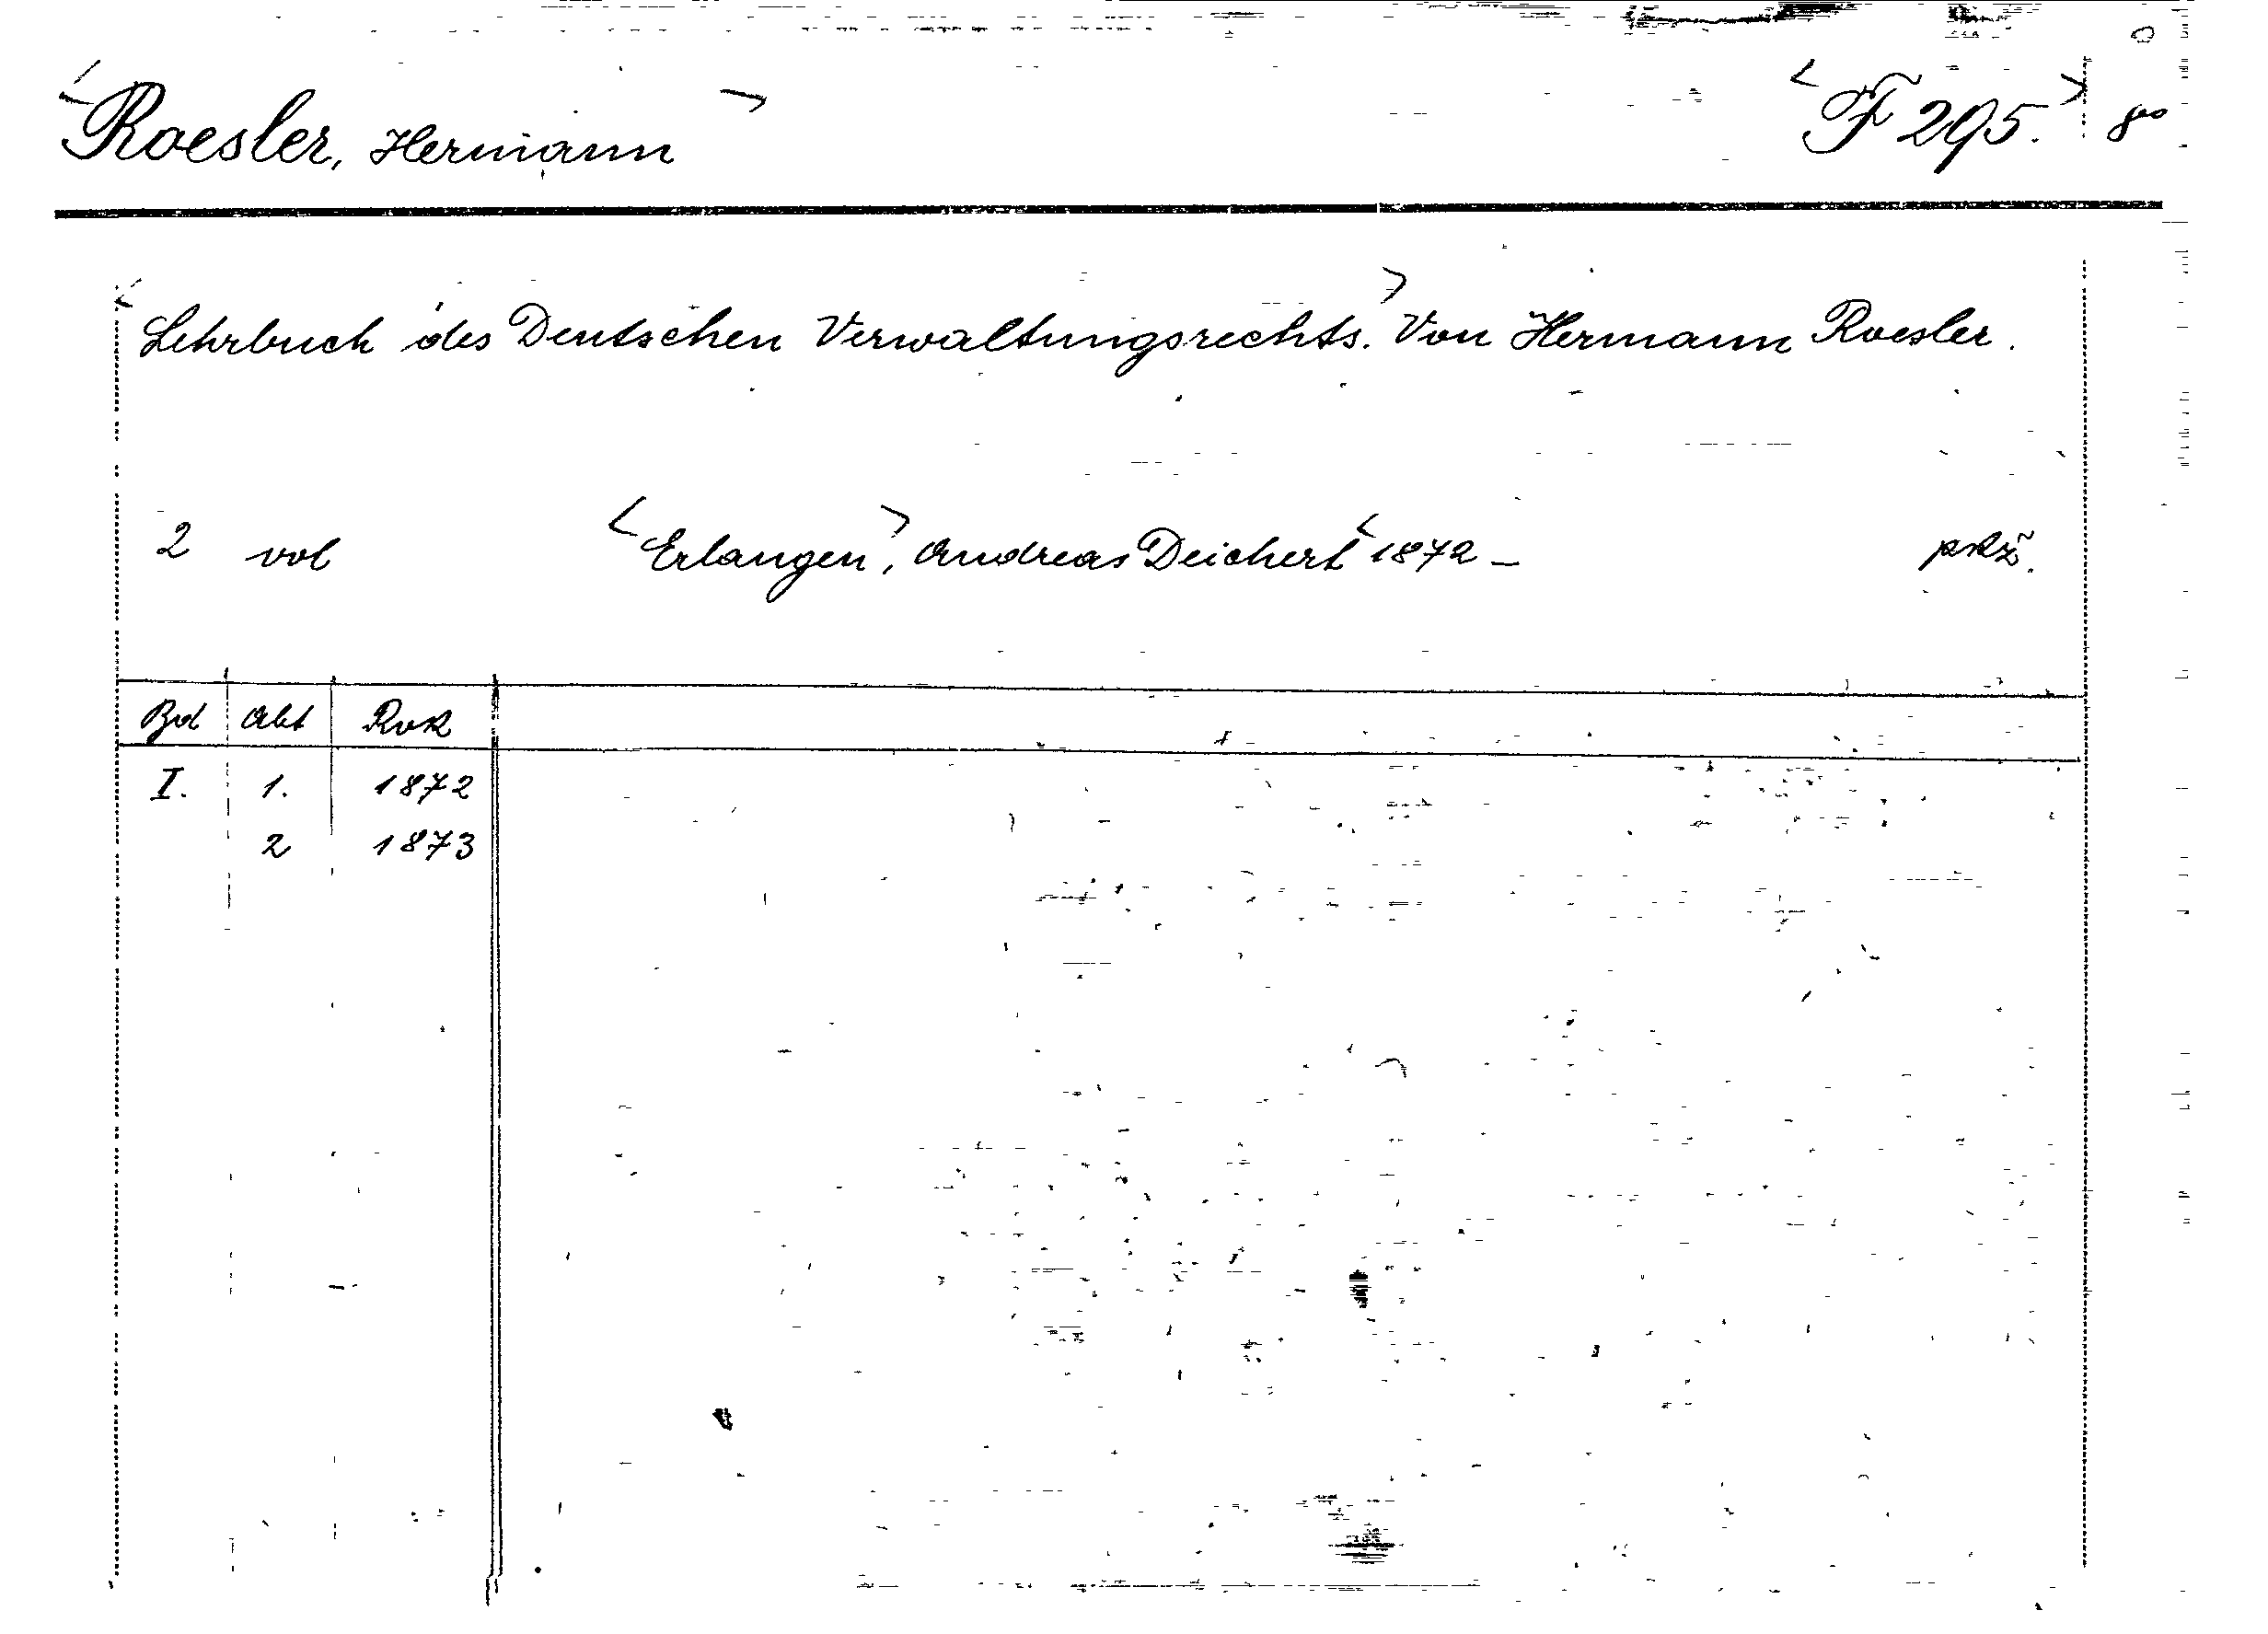 <Roesler, Hermann> <F̃ 295.> 8°
<Lehrbuch des Deutschen Verwaltungsrechts.> Von Hermann Roesler.
2 vol <Erlangen>, Andreas Deichert <1872 – prž.
Bd Abt Rok
I. 1. 1872
2 1873